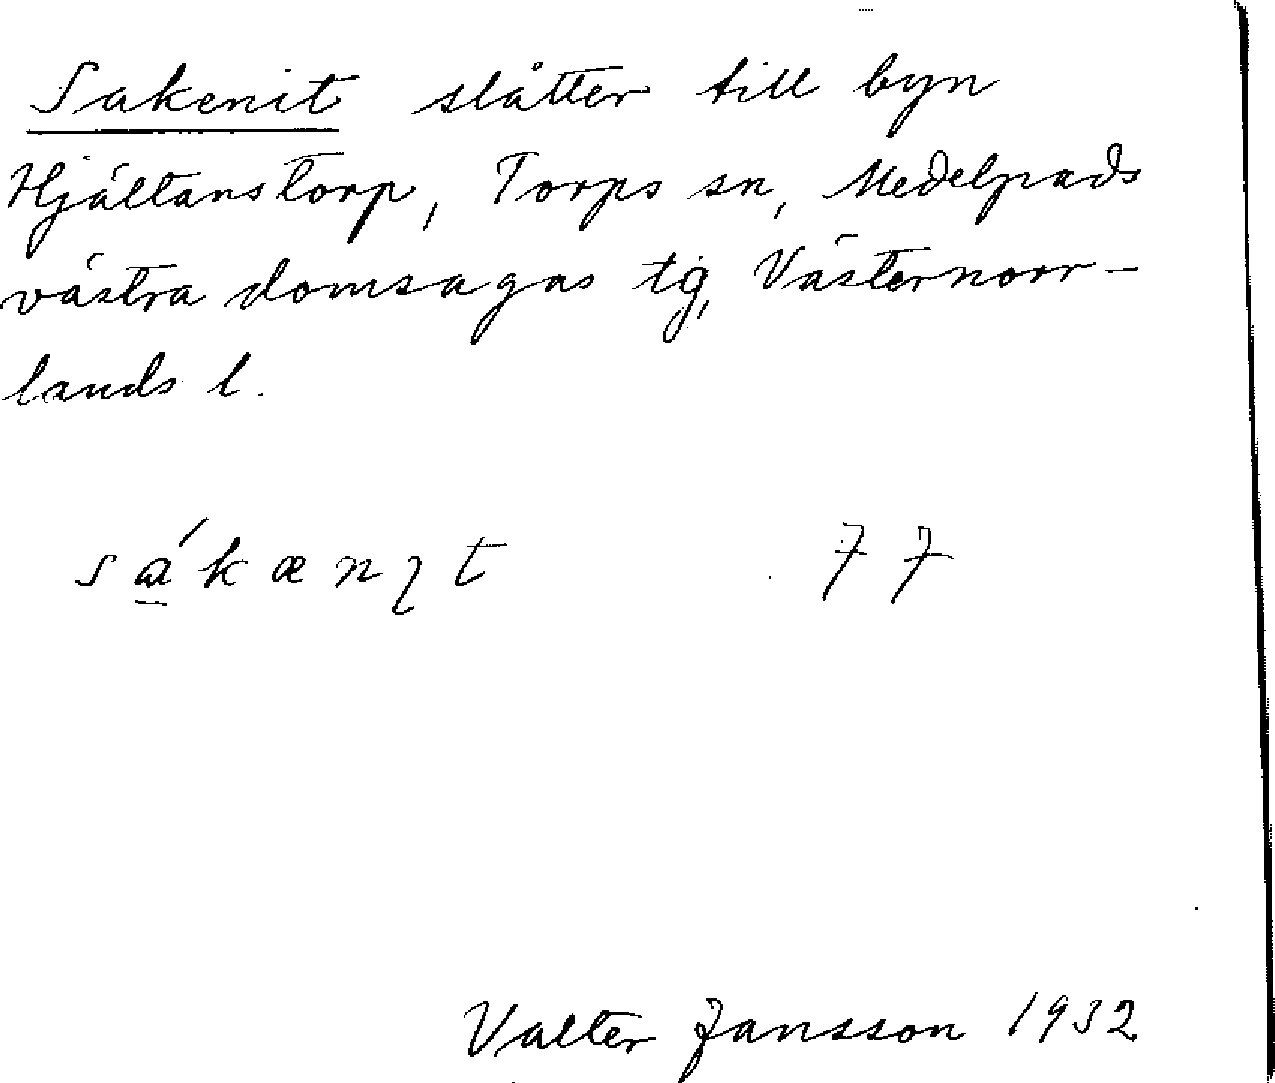 Sakenit slåtter till byn
Hjältanstorp, Torps sn, Medelpads
västra domsagas tg, Västernorr-
lands l.
sá̱kænɿt 77
Valter Jansson 1932